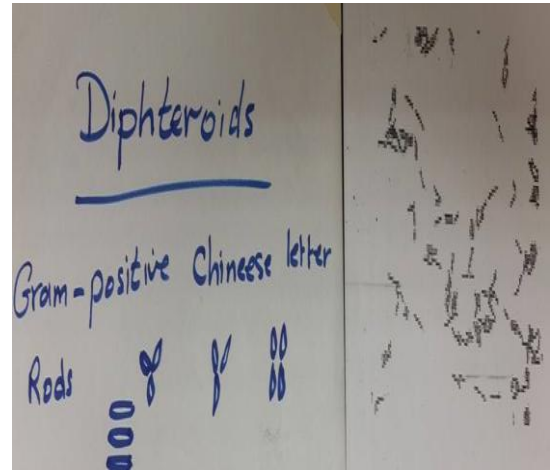 Diphteroids
Gram-positive Chineese letter
Rods